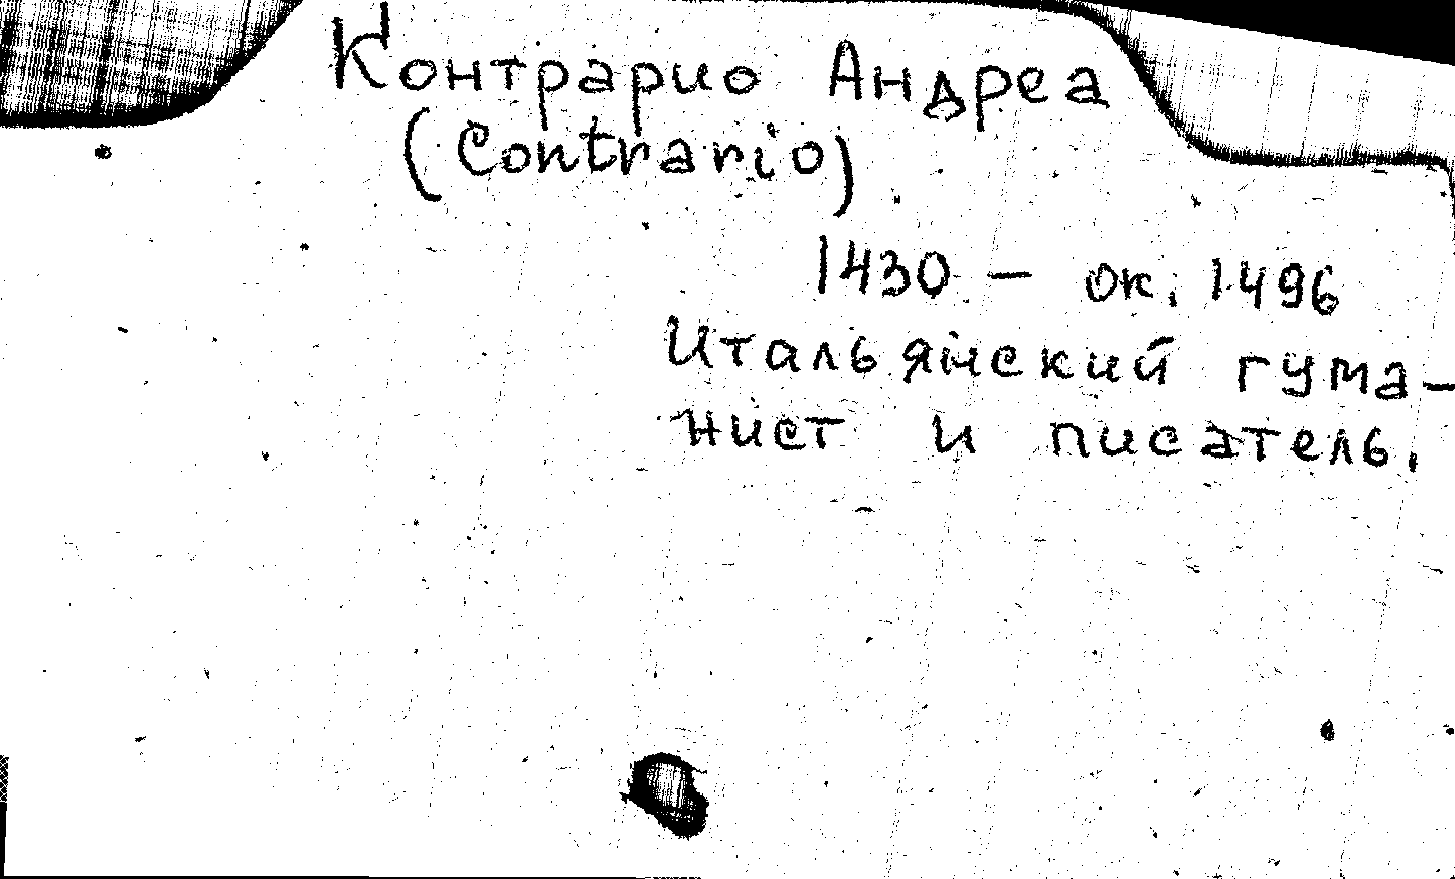 Контрарио Андреа
(Contrario)
1430 – ок. 1496
Итальянский гума-
нист и писатель.